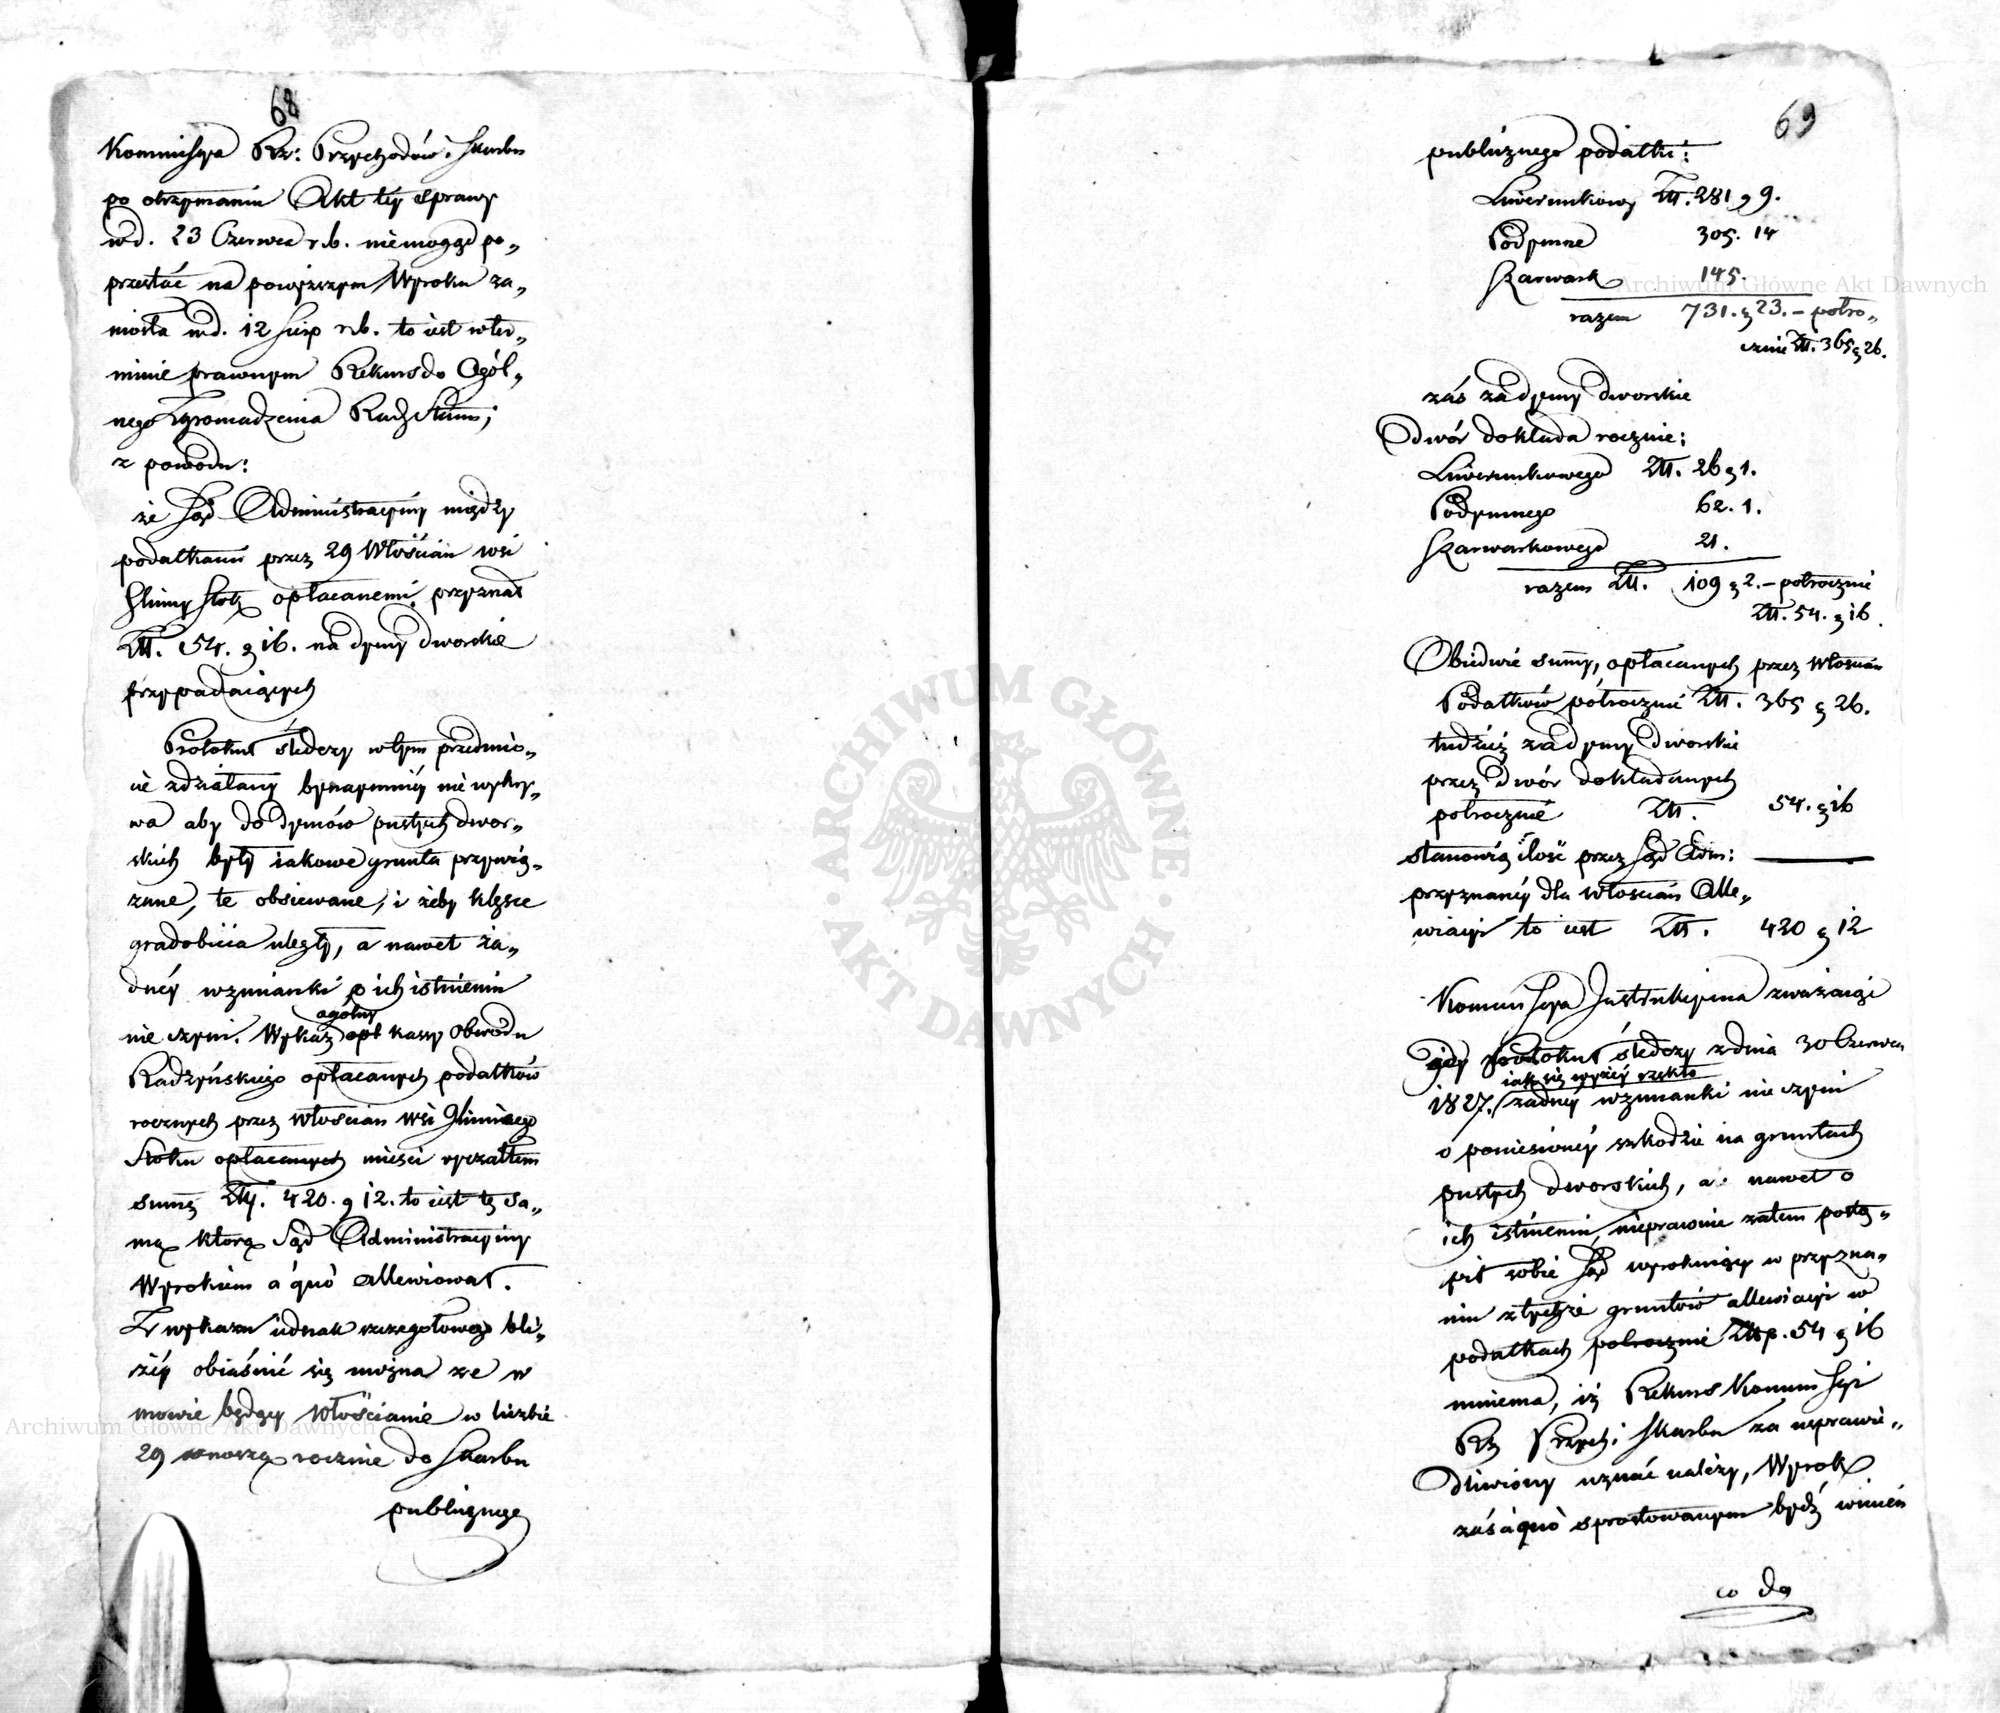 68
Kommissya Rz: Przychodów i Skarbu
po otrzymaniu Akt téy Sprawy
w d. 23 Czerwca r.b. niemogąc po„
przestać na powyższym Wyroku za„
niosła w d. 12 Sierp r.b. to iest w ter„
minie prawnym Rekurs do Ogól„
nego Zgromadzenia Rady Stanu;
z powodu:
że Sąd Administracyiny między
podatkami przez 29 Włościan wsi
Gliny Stok opłacanemi, przyznał
Złł. 54. g 16. na dymy dworskie
przypadaiących
Protokuł śledczy w tym przedmio„
cie zdziałany bynaymniéy nie wykry„
wa aby do dymów pustych dwor„
skich były iakowe grunta przywią„
zane, te obsiewane, i żeby klęsce
gradobicia uległy, a nawet ża„
dnéy wzmianki o ich istnieniu
nie czyni. Wykaz ogólny opł kassy Obwodu
Radzyńskiego opłacanych podatków
rocznych przez włościan wsi Gliniego
Stoku opłacanych mieści ryczałtem
summę Złł. 420. g 12. to iest tę sa„
mą którą Sąd Administracyiny
Wyrokiem a quò allewiował.
Z wykazu iednak szczegołowego bli„
żéy obiaśnić się można że w
mowie będący Włościanie w liczbie
29 wnoszą rocznie do Skarbu
publicznego
69
publicznego podatki:
Liwerunkowy Złł. 281 g 9.
Podymne 305. 14
Szarwark 145.
razem 731. g 23. – połro„
cznie Złł. 365 g 26.
zaś za dymy dworskie
Dwór dokłada rocznie:
Liwerunkowego Złł. 26 g 1.
Podymnego 62. 1.
Szarwarkowego 21.
razem Złł. 109 g 2. – połrocznie
Złł. 54. g 16.
Obiedwie summy, opłacanych przez Włościan
Podatków półrocznie Złł. 365 g 26.
tudzież za dymy dworskie
przez dwór dokładanych
połrocznie Złł. 54. g 16
stanowią ilość przez Sąd Adm:
przyznanéy dla włościan Alle„
wiacyi to iest Złł. 420 g 12
Kommissya Instrukcyina zważaiąc
gdy Protokuł śledczy z dnia 30 Czerwca
iak się wyżéy rzekło
1827. żadnéy wzmianki nie czyni
o poniesionéy szkodzie na gruntach
pustych dworskich, a nawet o
ich istnieniu, nieprawnie zatem postą„
pił sobie Sąd wyrokuiący w przyzna„
niu z tychże gruntów allewiacyi w
podatkach połrocznie Złłp. 54 g 16
mniema, iż Rekurs Kommissyi
Rz Przych: i Skarbu za usprawie„
dliwiony uznać należy, Wyrok
zaś a quò sprostowanym bydź winien
co do
Archiwum Główne Akt Dawnych
Archiwum Główne Akt Dawnych
ARCHIWUM GŁÓWNE
AKT DAWNYCH